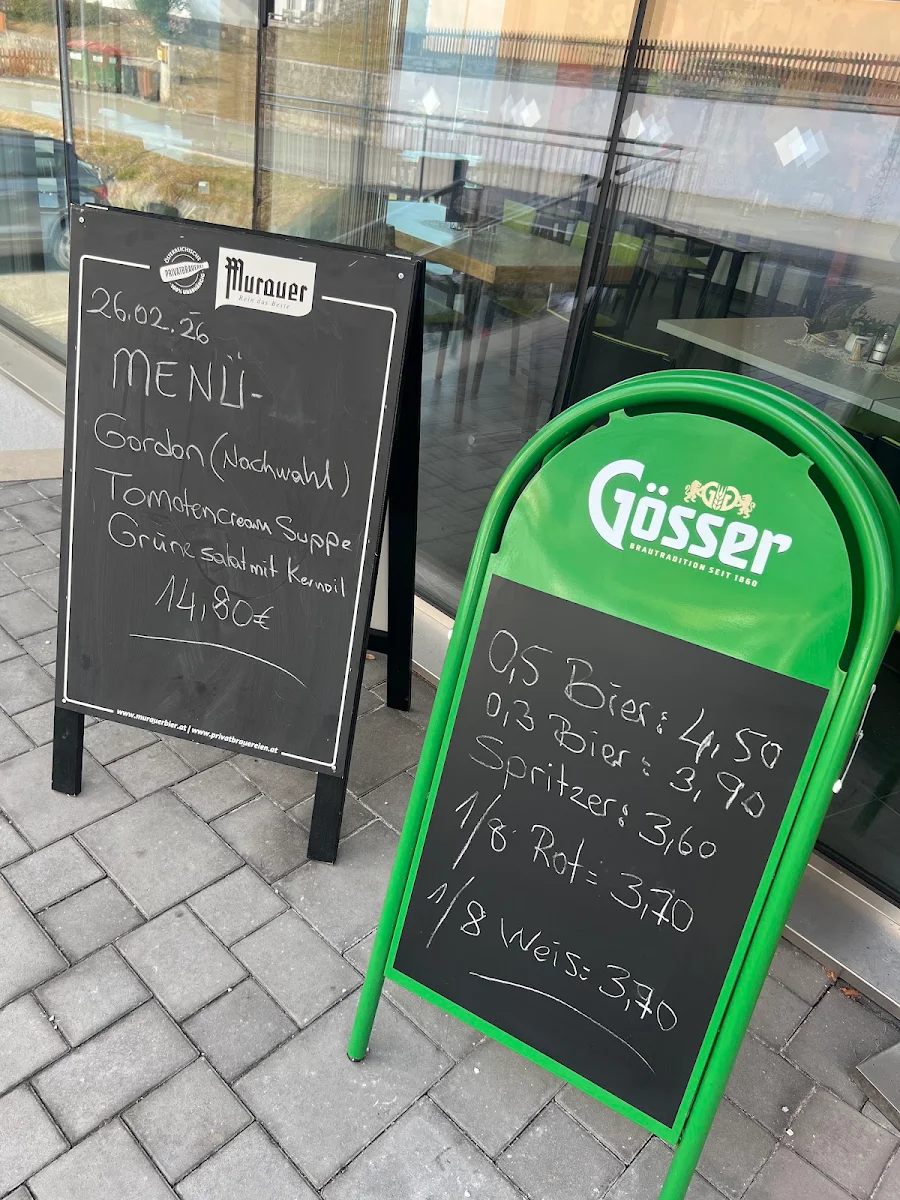 ÖSTERREICHISCHE
PRIVATBRAUEREI
100% UNABHÄNGIG
Murauer
Rein das Beste
26.02.26
MENÜ-
Gordon (Nachwahl)
Tomatencream Suppe
Grüne salat mit Kernoil
14,80€
www.murauerbier.at | www.privatbrauereien.at
Gösser
BRAUTRADITION SEIT 1860
0,5 Bier: 4,50
0,3 Bier: 3,90
Spritzer: 3,60
1/8 Rot: 3,70
1/8 Weis: 3,70